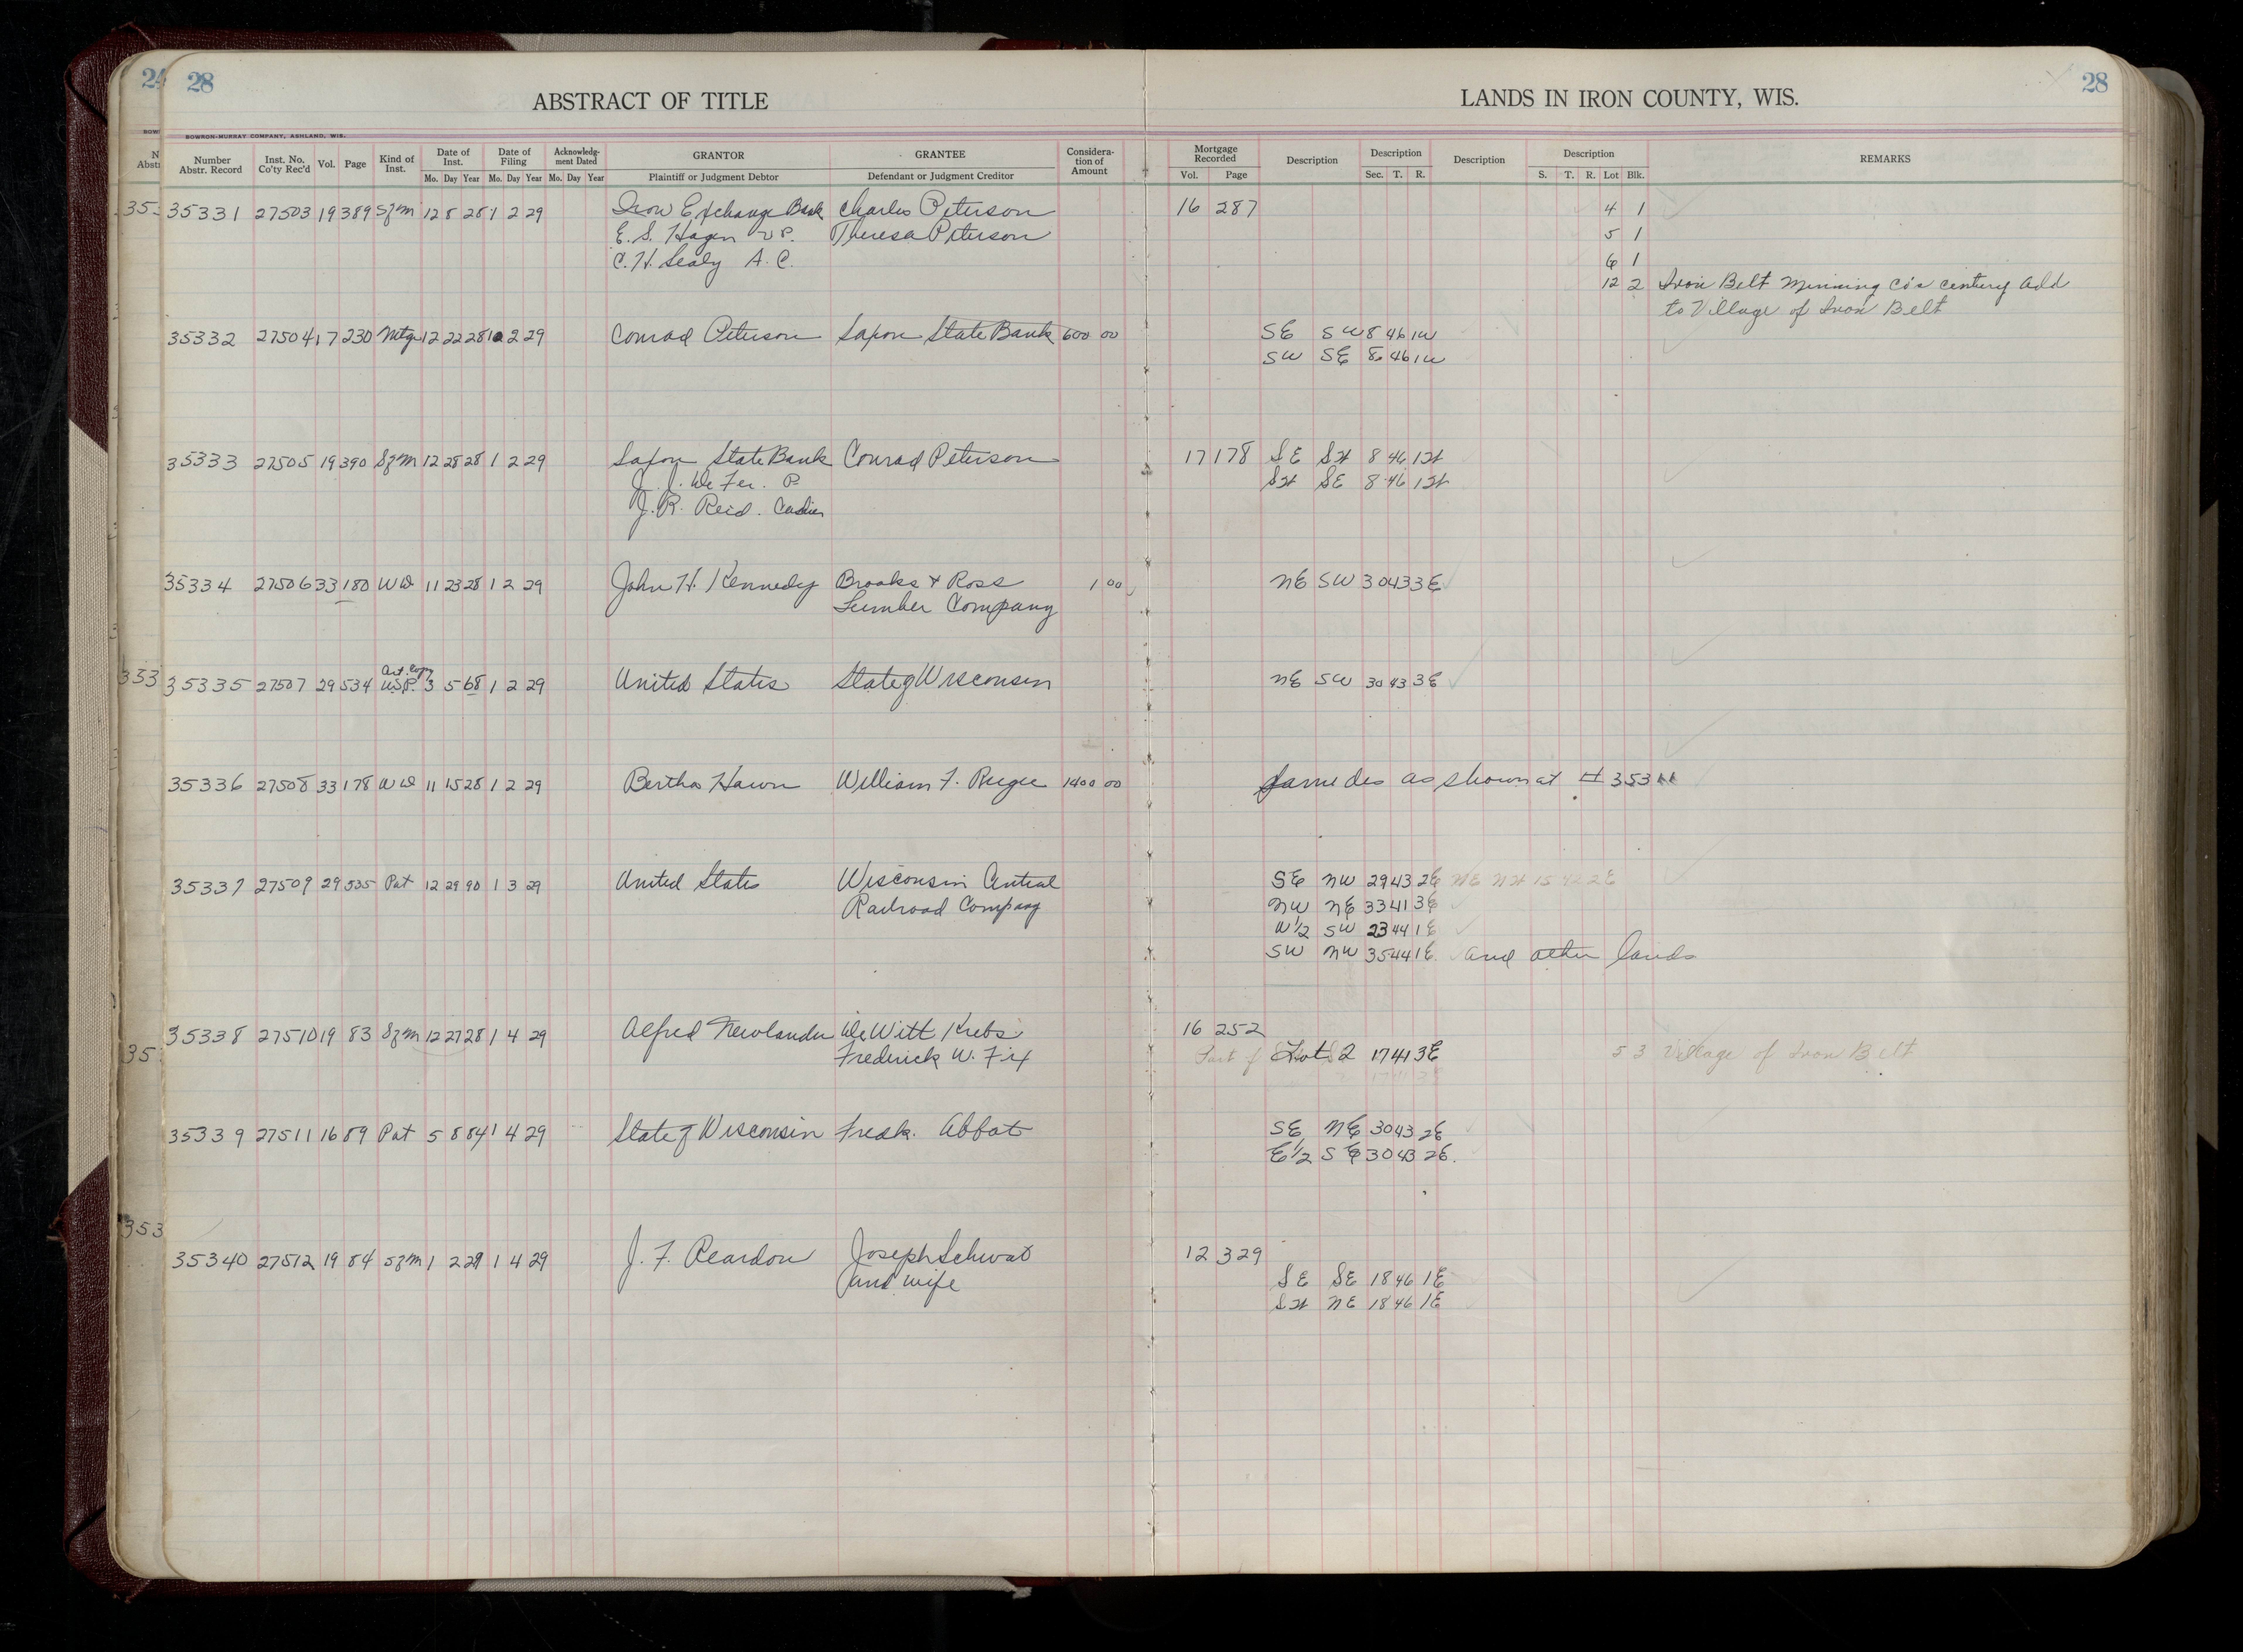 24 28
ABSTRACT OF TITLE
LANDS IN IRON COUNTY, WIS.
28
BOWRON-MURRAY COMPANY, ASHLAND, WIS.
Number Abstr. Record | Inst. No. Co'ty Rec'd | Vol. | Page | Kind of Inst. | Date of Inst. Mo. Day Year | Date of Filing Mo. Day Year | Acknowledg-ment Dated Mo. Day Year | GRANTOR Plaintiff or Judgment Debtor | GRANTEE Defendant or Judgment Creditor | Considera-tion of Amount | Mortgage Recorded Vol. Page | Description | Description Sec. T. R. | Description | Description S. T. R. Lot Blk. | REMARKS
35331 27503 19 389 Szm 12 8 28 1 2 29 Iron Exchange Bank Charles Peterson 16 287 4 1
E. S. Hagen V P. Theresa Peterson 5 1
C. H. Sealy A. C. 6 1
12 2 Iron Belt Minning Co's century add
to Village of Iron Belt
35332 27504 17 230 Mtge 12 22 28 1 2 29 Conrad Peterson Saxon State Bank 600 00 SE SW 8 46 1W
SW SE 8 46 1W
35333 27505 19 390 Szm 12 28 28 1 2 29 Saxon State Bank Conrad Peterson 17 178 SE SW 8 46 1W
J. J. De Fer. P. SW SE 8 46 1W
J. R. Reid. Cashier
35334 27506 33 180 WD 11 23 28 1 2 29 John H. Kennedy Brooks & Ross 1 00 NE SW 30 43 3E
Lumber Company
35335 27507 29 534 U.S.P. 3 5 68 1 2 29 United States State of Wisconsin NE SW 30 43 3E
35336 27508 33 178 WD 11 15 28 1 2 29 Bertha Hawn William F. 1400 00 Same des as shown at # 353
35337 27509 29 535 Pat 12 29 90 1 3 29 United States Wisconsin Central SE NW 29 43 2E NE NW 15 42 2E
Railroad Company NW NE 33 41 3E
W½ SW 23 44 1E
SW NW 35 44 1E and other lands
35338 27510 19 83 Szm 12 27 28 1 4 29 Alfred Newlander De Witt Krebs 16 252
Frederick W. Fix Part of Lot 2 17 41 3E 5 3 Village of Iron Belt
35339 27511 16 89 Pat 5 8 84 1 4 29 State of Wisconsin Fredk. Abbot SE NE 30 43 2E
E½ SE 30 43 2E.
35340 27512 19 84 Szm 1 2 29 1 4 29 J. F. Reardon Joseph Schwab 12 329
and wife SE SE 18 46 1E
SW NE 18 46 1E